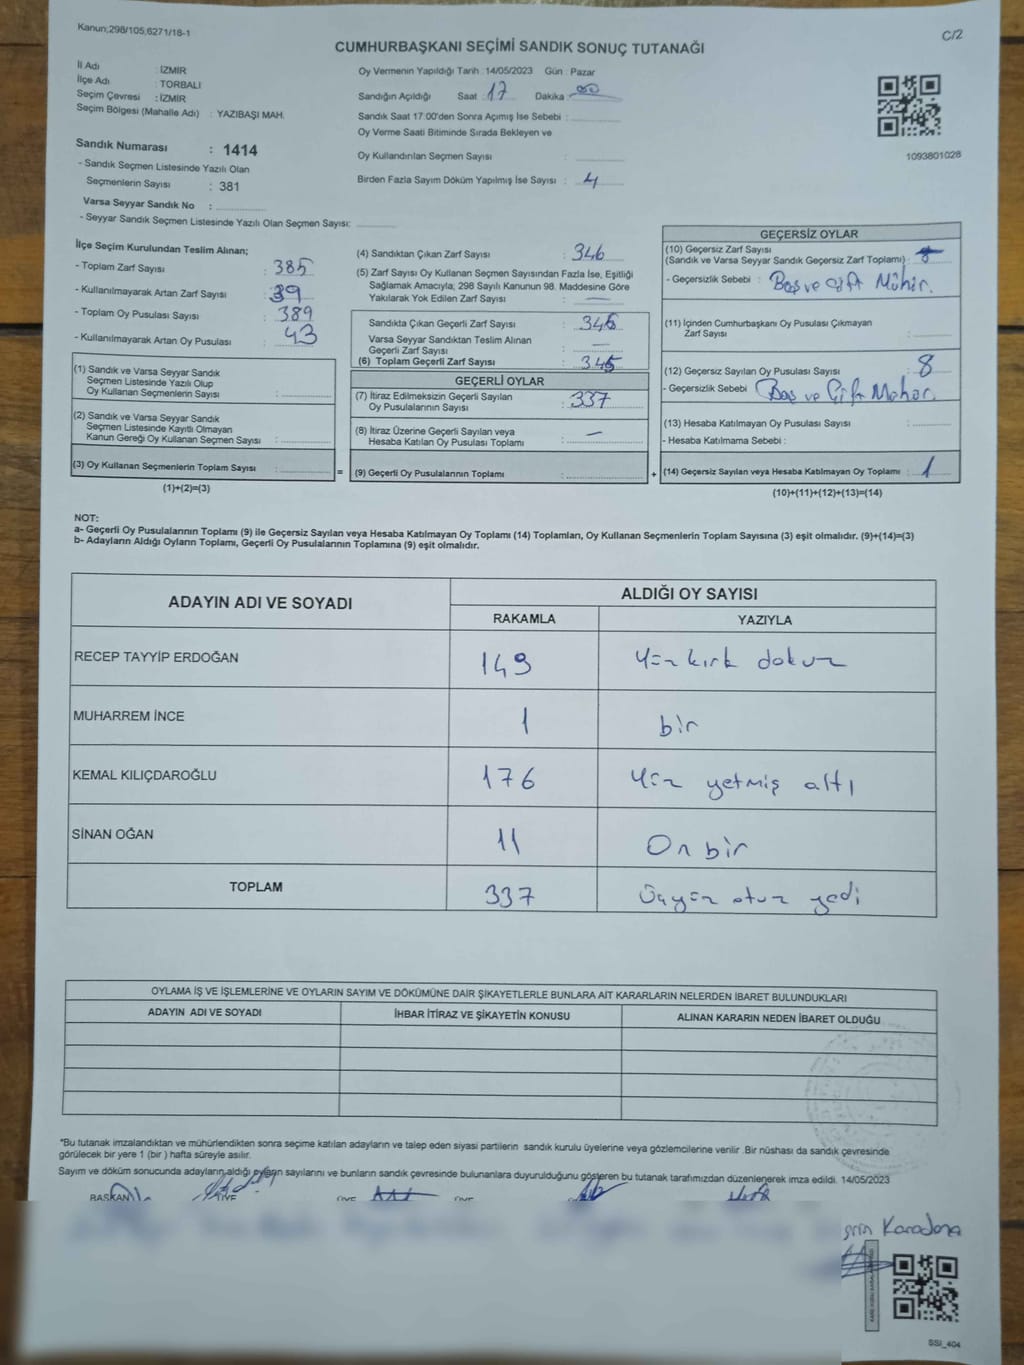 Kanun;298/105,6271/18-1
C/2
CUMHURBAŞKANI SEÇİMİ SANDIK SONUÇ TUTANAĞI
İl Adı : İZMİR
İlçe Adı : TORBALI
Seçim Çevresi : İZMİR
Seçim Bölgesi (Mahalle Adı) : YAZIBAŞI MAH.
Sandık Numarası : 1414
- Sandık Seçmen Listesinde Yazılı Olan
Seçmenlerin Sayısı : 381
Varsa Seyyar Sandık No :
- Seyyar Sandık Seçmen Listesinde Yazılı Olan Seçmen Sayısı:
Oy Vermenin Yapıldığı Tarih : 14/05/2023 Gün : Pazar
Sandığın Açıldığı Saat : 17 Dakika : 00
Sandık Saat 17.00'den Sonra Açımış İse Sebebi :
Oy Verme Saati Bitiminde Sırada Bekleyen ve
Oy Kullandırılan Seçmen Sayısı :
Birden Fazla Sayım Döküm Yapılmış İse Sayısı : 4
1093801028
İlçe Seçim Kurulundan Teslim Alınan;
- Toplam Zarf Sayısı : 385
- Kullanılmayarak Artan Zarf Sayısı : 39
- Toplam Oy Pusulası Sayısı : 389
- Kullanılmayarak Artan Oy Pusulası : 43
(1) Sandık ve Varsa Seyyar Sandık
Seçmen Listesinde Yazılı Olup
Oy Kullanan Seçmenlerin Sayısı :
(2) Sandık ve Varsa Seyyar Sandık
Seçmen Listesinde Kayıtlı Olmayan
Kanun Gereği Oy Kullanan Seçmen Sayısı :
(3) Oy Kullanan Seçmenlerin Toplam Sayısı :
(1)+(2)=(3)
=
(4) Sandıktan Çıkan Zarf Sayısı : 346
(5) Zarf Sayısı Oy Kullanan Seçmen Sayısından Fazla İse, Eşitliği
Sağlamak Amacıyla; 298 Sayılı Kanunun 98. Maddesine Göre
Yakılarak Yok Edilen Zarf Sayısı : —
Sandıkta Çıkan Geçerli Zarf Sayısı :
Varsa Seyyar Sandıktan Teslim Alınan
Geçerli Zarf Sayısı : —
(6) Toplam Geçerli Zarf Sayısı : 345
GEÇERLİ OYLAR
(7) İtiraz Edilmeksizin Geçerli Sayılan
Oy Pusulalarının Sayısı : 337
(8) İtiraz Üzerine Geçerli Sayılan veya
Hesaba Katılan Oy Pusulası Toplamı : —
(9) Geçerli Oy Pusulalarının Toplamı :
+
GEÇERSİZ OYLAR
(10) Geçersiz Zarf Sayısı
(Sandık ve Varsa Seyyar Sandık Geçersiz Zarf Toplamı) :
- Geçersizlik Sebebi : Boş ve çift Mühür.
(11) İçinden Cumhurbaşkanı Oy Pusulası Çıkmayan
Zarf Sayısı :
(12) Geçersiz Sayılan Oy Pusulası Sayısı : 8
- Geçersizlik Sebebi : Boş ve Çift Mühür.
(13) Hesaba Katılmayan Oy Pusulası Sayısı :
- Hesaba Katılmama Sebebi :
(14) Geçersiz Sayılan veya Hesaba Katılmayan Oy Toplamı : 1
(10)+(11)+(12)+(13)=(14)
NOT:
a- Geçerli Oy Pusulalarının Toplamı (9) ile Geçersiz Sayılan veya Hesaba Katılmayan Oy Toplamı (14) Toplamları, Oy Kullanan Seçmenlerin Toplam Sayısına (3) eşit olmalıdır. (9)+(14)=(3)
b- Adayların Aldığı Oyların Toplamı, Geçerli Oy Pusulalarının Toplamına (9) eşit olmalıdır.
ADAYIN ADI VE SOYADI
ALDIĞI OY SAYISI
RAKAMLA YAZIYLA
RECEP TAYYİP ERDOĞAN 149 Yüz kırk dokuz
MUHARREM İNCE 1 bir
KEMAL KILIÇDAROĞLU 176 Yüz yetmiş altı
SİNAN OĞAN 11 On bir
TOPLAM 337 Üçyüz otuz yedi
OYLAMA İŞ VE İŞLEMLERİNE VE OYLARIN SAYIM VE DÖKÜMÜNE DAİR ŞİKAYETLERLE BUNLARA AİT KARARLARIN NELERDEN İBARET BULUNDUKLARI
ADAYIN ADI VE SOYADI İHBAR İTİRAZ VE ŞİKAYETİN KONUSU ALINAN KARARIN NEDEN İBARET OLDUĞU
*Bu tutanak imzalandıktan ve mühürlendikten sonra seçime katılan adayların ve talep eden siyasi partilerin sandık kurulu üyelerine veya gözlemcilerine verilir .Bir nüshası da sandık çevresinde
görülecek bir yere 1 (bir ) hafta süreyle asılır.
Sayım ve döküm sonucunda adayların aldığı oyların sayılarını ve bunların sandık çevresinde bulunanlara duyurulduğunu gösteren bu tutanak tarafımızdan düzenlenerek imza edildi. 14/05/2023
BAŞKAN ÜYE ÜYE ÜYE
Karadona
SSİ_404